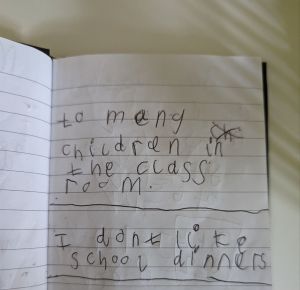 to many
children in
the class
room.
I dont like
school dinners